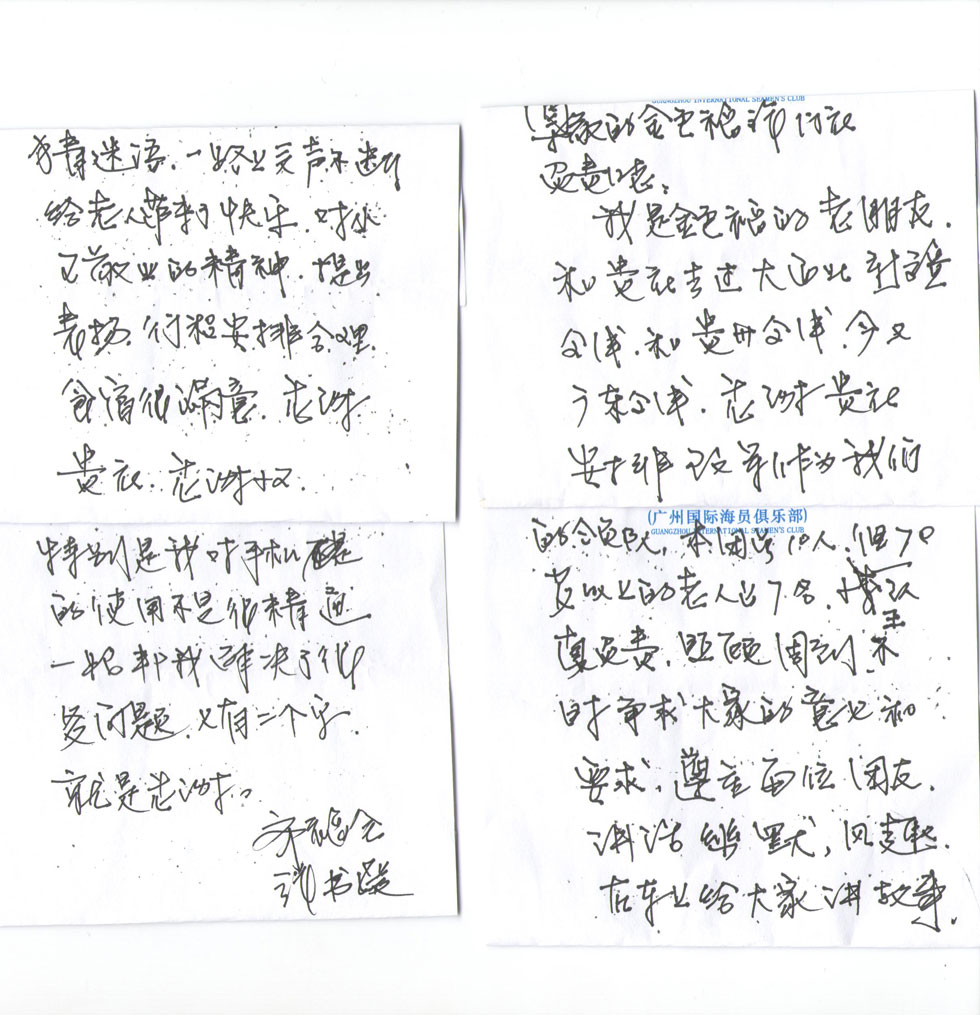 GUANGZHOU INTERNATIONAL SEAMEN'S CLUB
尊敬的金色福旅行社
负责同志：
我是金色福的老朋友．
和贵社去过大西北
全线．和贵州全线．今又
广东全线．感谢贵社
安排 作为我们
(广州国际海员俱乐部)
GUANGZHOU INTERNATIONAL SEAMEN'S CLUB
的领队，本团学员 人．但70
岁以上的老人占7名．
真负责．照顾周到
时争求大家的意见和
要求．尊重每位团友．
讲活幽默，风趣．
在车上给大家讲故事．
猜谜语．一路上笑声不断
给老人带来了快乐．对
敬业的精神．提出
表扬．行程安排合理．
食宿很满意．感谢
贵社．感谢
特别是我对手机
的使用不是很精通
一一帮我解决了很
多问题．只有二个字．
就是感谢．